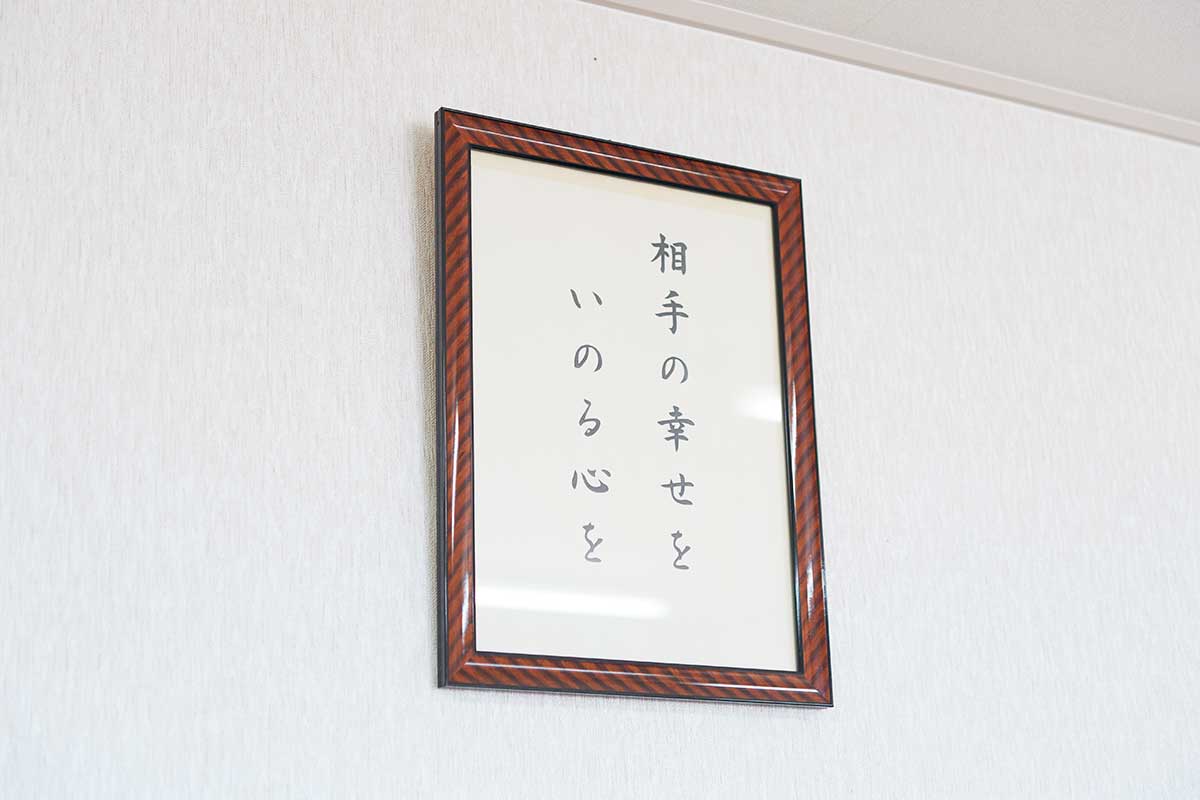 相手の幸せを
いのる心を